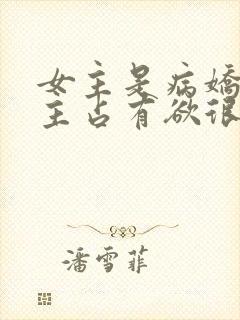 女主是病娇
主占有欲很
潘雪菲